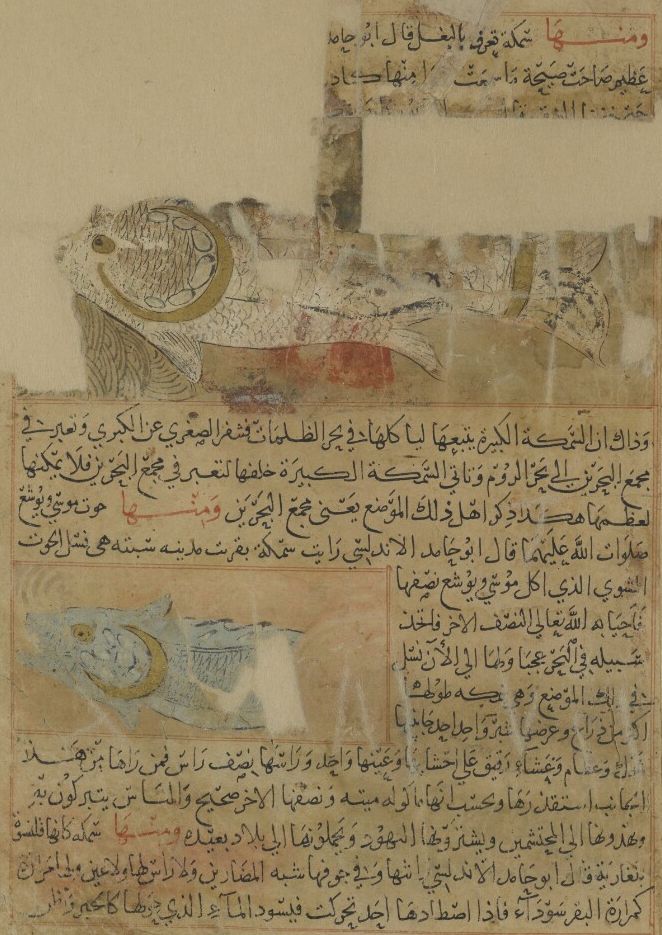 ومنها سمكة تعرف بالبغل قال ابو حامد
عظيم صاحت صيحة ما سمعت منها كاد
وذاك ان السمكة الكبيرة يتبعها لياكلها في بحر الظلمات فتفر الصغري عن الكبري وتعبر في
مجمع البحرين الي بحر الروم وتاتي السمكة الكبيرة خلفها لتعبر في مجمع البحرين فلا يمكنها
لعظمها هكذا ذكر اهل ذلك الموضع يعني مجمع البحرين ومنها حوت موسي ويوشع
صلوات الله عليهما قال ابو حامد الاندلسي رايت سمكة بقرب مدينه سبته هي نسل الحوت
المشوي الذي اكل موسي ويوشع نصفها
فاحيا الله تعالي النصف الاخر فاتخذ
سبيله في البحر عجبا ولها الي الآن نسل
في ذلك الموضع وهي سمكه طولها
اكثر من ذراع وعرضها شبر واحد احد جانبيها
شوك وعظام وغشاء رقيق علي احشائها وعينها واحد وراسها نصف راس فمن راها من هذا
الجانب استقذرها ويحسب انها ماكوله ميته ونصفها الاخر صحيح والناس يتبركون بها
ويهدونها الي المحتشمين ويشتريها اليهود ويحملونها الي بلاد بعيده ومنها سمكه كانها قلنسوة
قال ابو حامد الاندلسي رايتها وفي جوفها شبه المصارين ولا راس لها ولا عين ولها مرارة
كمرارة البقر سوداء فاذا اصطادها احد تحركت فيسود الماء الذي حولها كالحبر